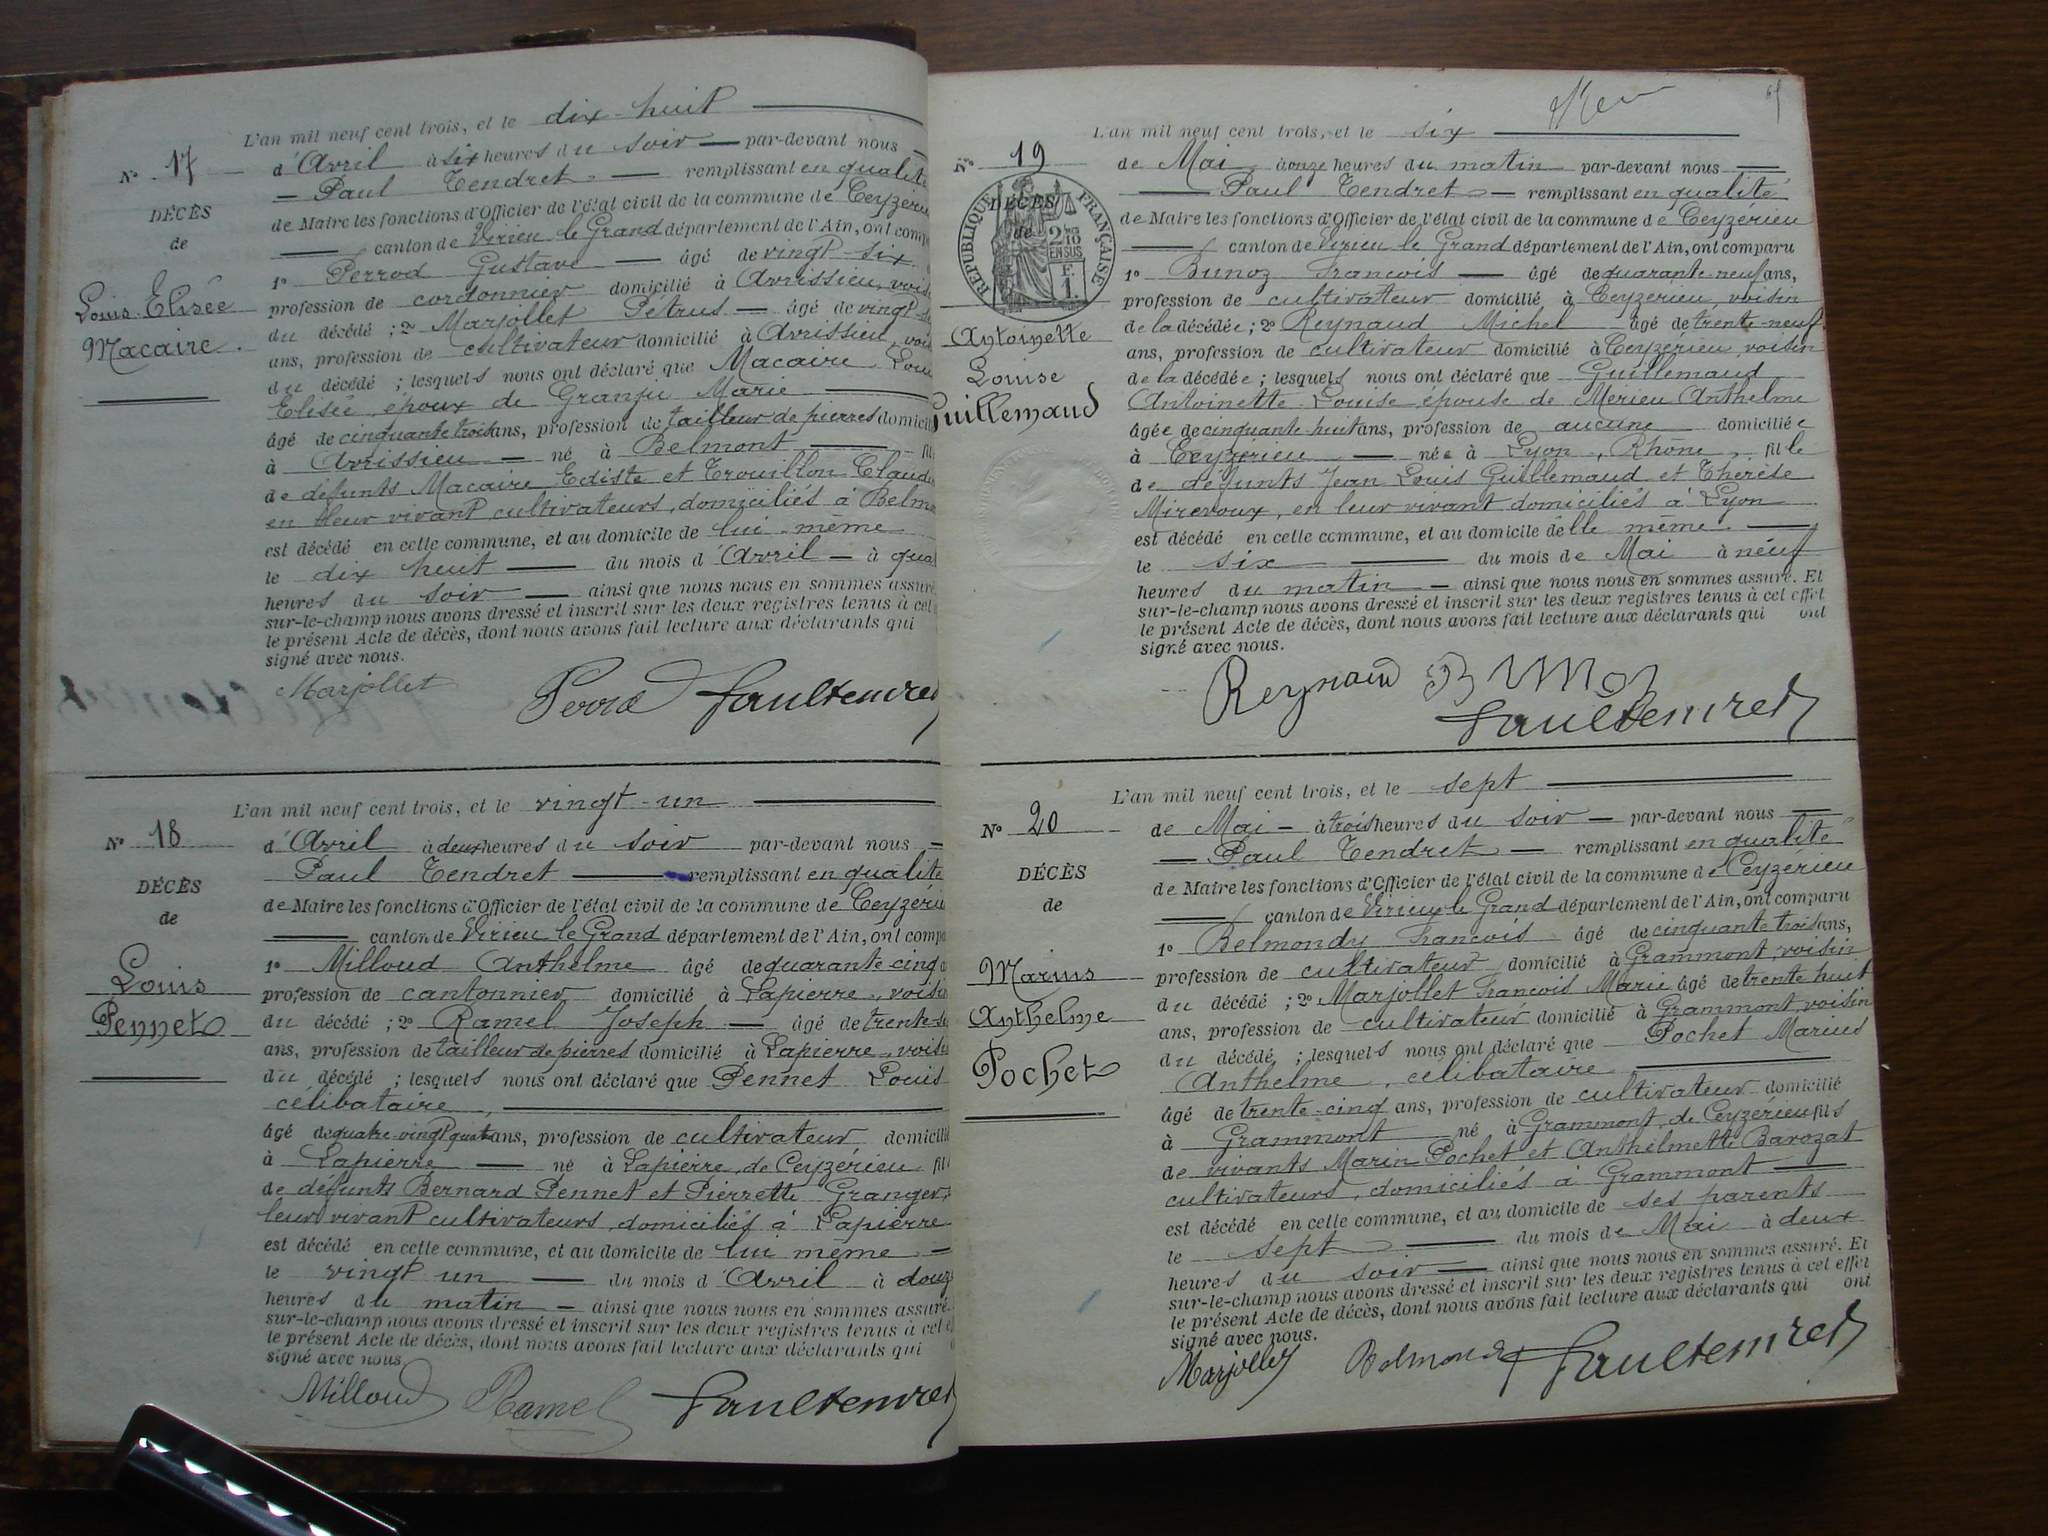 L'an mil neuf cent trois, et le dix-huit
N° 17
d'Avril à six heures du soir par-devant nous
Paul Tendret remplissant en qualité
DÉCÈS
de Maire les fonctions d'Officier de l'état civil de la commune de Ceyzérieu
de
canton de Virieu le Grand département de l'Ain, ont comp
1° Perrod Gustave âgé de vingt-six
Louis Elisée
profession de cordonnier domicilié à Avrissieu, vois
du décédé ; 2° Marjollet Pétrus âgé de vingt-
Macaire.
ans, profession de cultivateur domicilié à Avrissieu, vois
du décédé ; lesquels nous ont déclaré que Macaire Loui
Elisée, époux de Granju Marie
âgé de cinquante trois ans, profession de tailleur de pierres domicili
à Avrissieu né à Belmont fil
de défunts Macaire Ediste et Trouillon Claud
en leur vivant cultivateurs, domiciliés à Belm
est décédé en cette commune, et au domicile de lui-même
le dix huit du mois d'Avril à qua
heures du soir ainsi que nous nous en sommes assuré
sur-le-champ nous avons dressé et inscrit sur les deux registres tenus à cet
le présent Acte de décès, dont nous avons fait lecture aux déclarants qui
signé avec nous.
Marjollet Perrod Paul Tendret
L'an mil neuf cent trois, et le vingt-un
N° 18
d'Avril à deux heures du soir par-devant nous
Paul Tendret remplissant en qualité
DÉCÈS
de Maire les fonctions d'Officier de l'état civil de la commune de Ceyzérieu
de
canton de Virieu le Grand département de l'Ain, ont compa
1° Milloud Anthelme âgé de quarante-cinq
Louis
profession de cantonnier domicilié à Lapierre, voisin
Pennet
du décédé ; 2° Ramel Joseph âgé de trente-
ans, profession de tailleur de pierres domicilié à Lapierre, voisi
du décédé ; lesquels nous ont déclaré que Pennet Louis
celibataire,
âgé de quatre-vingt quatre ans, profession de cultivateur domicilié
à Lapierre né à Lapierre, de Ceyzérieu fil
de défunts Bernard Pennet et Pierrette Granger,
leur vivant cultivateurs, domiciliés à Lapierre
est décédé en cette commune, et au domicile de lui même
le vingt un du mois d'Avril à douze
heures du matin ainsi que nous nous en sommes assuré.
sur-le-champ nous avons dressé et inscrit sur les deux registres tenus à cet e
le présent Acte de décès, dont nous avons fait lecture aux déclarants qui
signé avec nous
Milloud Ramel Paul Tendret
L'an mil neuf cent trois, et le six
N° 19
de Mai à onze heures du matin par-devant nous
Paul Tendret remplissant en qualité
DÉCÈS
de
RÉPUBLIQUE FRANÇAISE
2/10 EN SUS
F. 1.
de Maire les fonctions d'Officier de l'état civil de la commune de Ceyzérieu
canton de Virieu le Grand département de l'Ain, ont comparu
1° Bunoz Francois âgé de quarante-neuf ans,
profession de cultivateur domicilié à Ceyzérieu, voisin
de la décédée ; 2° Reynaud Michel âgé de trente-neuf
Antoinette
ans, profession de cultivateur domicilié à Ceyzérieu, voisin
Louise
de la décédée ; lesquels nous ont déclaré que Guillemaud
Guillemaud
Antoinette Louise, épouse de Merieu Anthelme
âgée de cinquante-huit ans, profession de aucune domiciliée
à Ceyzérieu née à Lyon, Rhône, fille
de défunts Jean Louis Guillemaud et Therèse
Mirevoux, en leur vivant domiciliés à Lyon
est décédé en cette commune, et au domicile d'elle même
le six du mois de Mai à neuf
heures du matin ainsi que nous nous en sommes assuré. Et
sur-le-champ nous avons dressé et inscrit sur les deux registres tenus à cet effet
le présent Acte de décès, dont nous avons fait lecture aux déclarants qui ont
signé avec nous.
Reynaud Bunoz
Paul Tendret
L'an mil neuf cent trois, et le sept
N° 20
de Mai à trois heures du soir par-devant nous
Paul Tendret remplissant en qualité
DÉCÈS
de Maire les fonctions d'Officier de l'état civil de la commune de Ceyzérieu
de
canton de Virieu le Grand département de l'Ain, ont comparu
1° Belmondy Francois âgé de cinquante trois ans,
Marius
profession de cultivateur domicilié à Grammont, voisin
du décédé ; 2° Marjollet Francois Marie âgé de trente huit
Anthelme
ans, profession de cultivateur domicilié à Grammont, voisin
Pochet
du décédé ; lesquels nous ont déclaré que Pochet Marius
Anthelme, celibataire
âgé de trente-cinq ans, profession de cultivateur domicilié
à Grammont né à Grammont, de Ceyzérieu fils
de vivants Marin Pochet et Anthelmette Barozat
cultivateurs, domiciliés à Grammont
est décédé en cette commune, et au domicile de ses parents
le sept du mois de Mai à deux
heures du soir ainsi que nous nous en sommes assuré. Et
sur-le-champ nous avons dressé et inscrit sur les deux registres tenus à cet effet
le présent Acte de décès, dont nous avons fait lecture aux déclarants qui ont
signé avec nous.
Marjollet Belmondy Paul Tendret